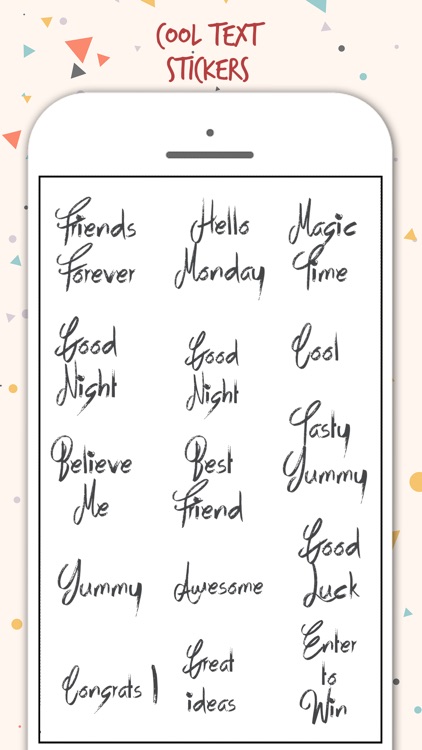 COOL TEXT
STICKERS
Friends
Forever
Hello
Monday
Magic
Time
Good
Night
Good
Night
Cool
Believe
Me
Best
Friend
Tasty
Yummy
Yummy
Awesome
Good
Luck
Congrats
Great
ideas
Enter
to
Win